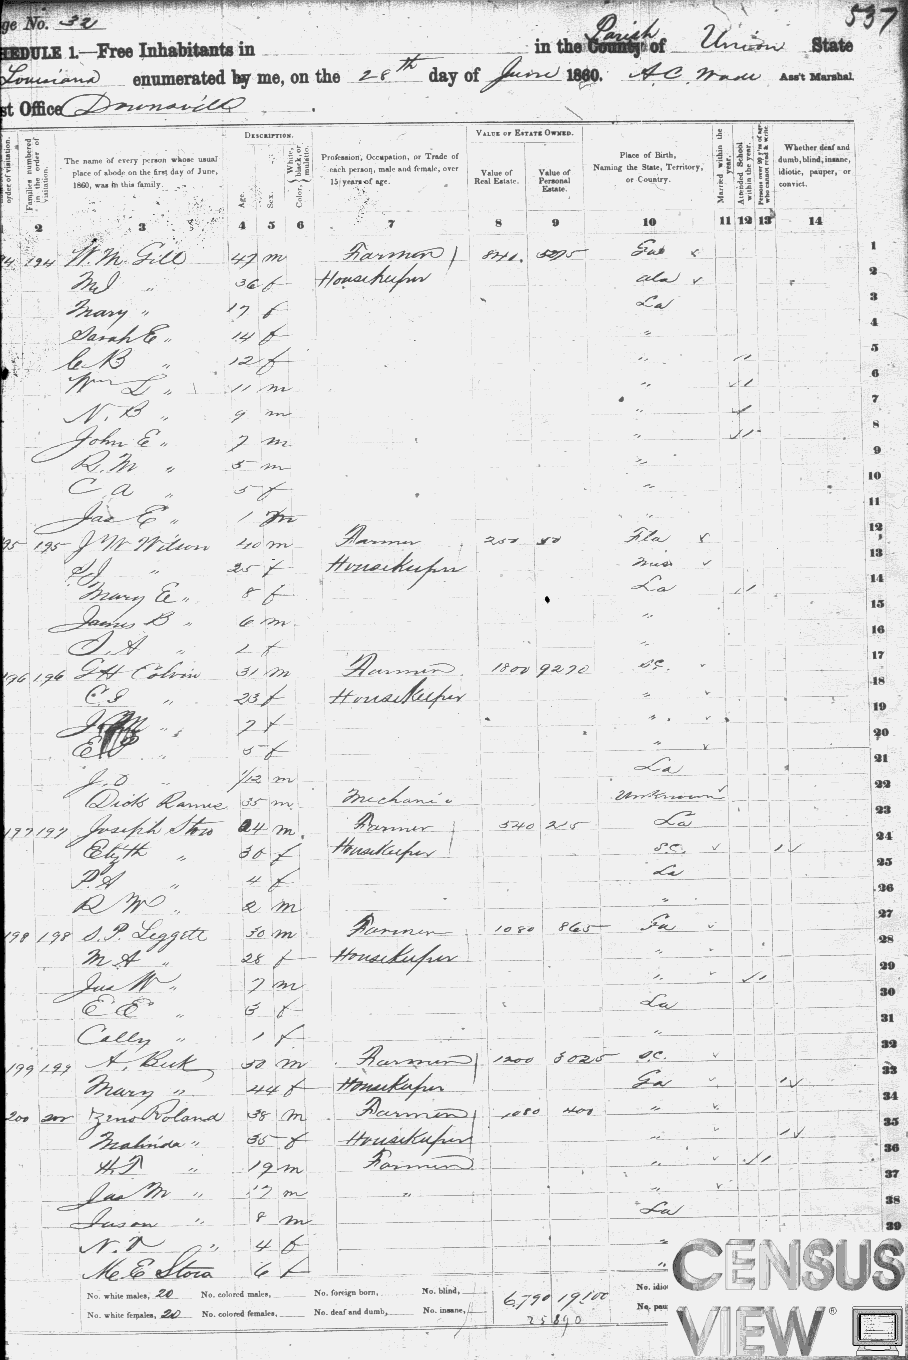 ge No. 32
537
HEDULE 1.—Free Inhabitants in in the County of Parish Union State
Louisiana enumerated by me, on the 28th day of June 1860. A.C. Wade Ass't Marshal.
st Office Downsville
order of visitation.
Families numbered in the order of visitation.
The name of every person whose usual place of abode on the first day of June, 1860, was in this family.
DESCRIPTION.
Age.
Sex.
White, black, or mulatto.
Color,
Profession, Occupation, or Trade of each person, male and female, over 15 years of age.
VALUE OF ESTATE OWNED.
Value of Real Estate.
Value of Personal Estate.
Place of Birth, Naming the State, Territory, or Country.
Married within the year.
Attended School within the year.
Persons over 20 y'rs of age who cannot read & write.
Whether deaf and dumb, blind, insane, idiotic, pauper, or convict.
2 3 4 5 6 7 8 9 10 11 12 13 14
194 W. M. Gill 47 m Farmer 840 Ga 1
36 f Housekeeper Ala 2
Mary " 17 f La 3
Sarah E " 14 f " 4
C B " 12 f " 5
Wm L " 11 m " 6
N. B " 9 m " 7
John E " 7 m " 8
R. M " 5 m " 9
C A " 5 f " 10
Jas E " 1 m " 11
95 195 J W Wilson 40 m Farmer 250 50 Fla 12
S J " 25 f Housekeeper Miss 13
Mary E " 8 f La 14
James B " 6 m " 15
S. A " 2 f " 16
196 196 G H Colvin 31 m Farmer 1800 9270 S.C. 17
C S " 23 f Housekeeper " 18
J. M 7 f " 19
E P " 5 f " 20
J. O " 1/12 m La 21
Dick Rames 35 m Mechanic Unknown 22
197 197 Joseph Stow 24 m Farmer 540 225 La 23
Elizth " 30 f Housekeeper S.C. 24
P. A " 4 f La 25
R W " 2 m " 26
198 198 S. P. Leggett 30 m Farmer 1080 865 Ga 27
M A " 28 f Housekeeper " 28
Jas W " 7 m " 29
E E " 3 f La 30
Cally " 1 f " 31
199 199 A. Beck 50 m Farmer 1200 3025 S.C. 32
Mary " 44 f Housekeeper Ga 33
200 200 Zeno Roland 38 m Farmer 1080 400 " 34
Malinda " 35 f Housekeeper " 35
H. T " 19 m Farmer " 36
Jas M " 17 m " " 37
Jason " 8 m La 38
N. T " 4 f " 39
M. E Stow 6 f "
No. white males, 20 No. colored males, No. foreign born, No. blind, 6,790 19100 No. idio
No. white females, 20 No. colored females, No. deaf and dumb, No. insane, 25890 No. pau
CENSUS
VIEW®